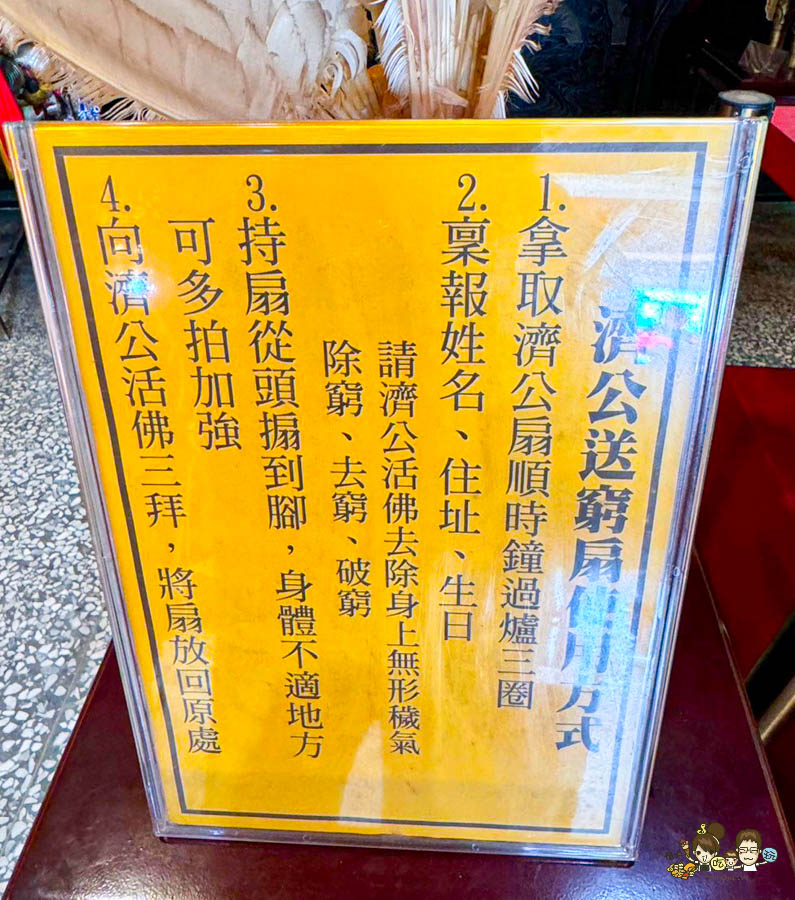 濟公送窮扇使用方式
1.拿取濟公扇順時鐘過爐三圈
2.稟報姓名、住址、生日
請濟公活佛去除身上無形穢氣
除窮、去窮、破窮
3.持扇從頭搧到腳，身體不適地方
可多拍加強
4.向濟公活佛三拜，將扇放回原處
吃
玩